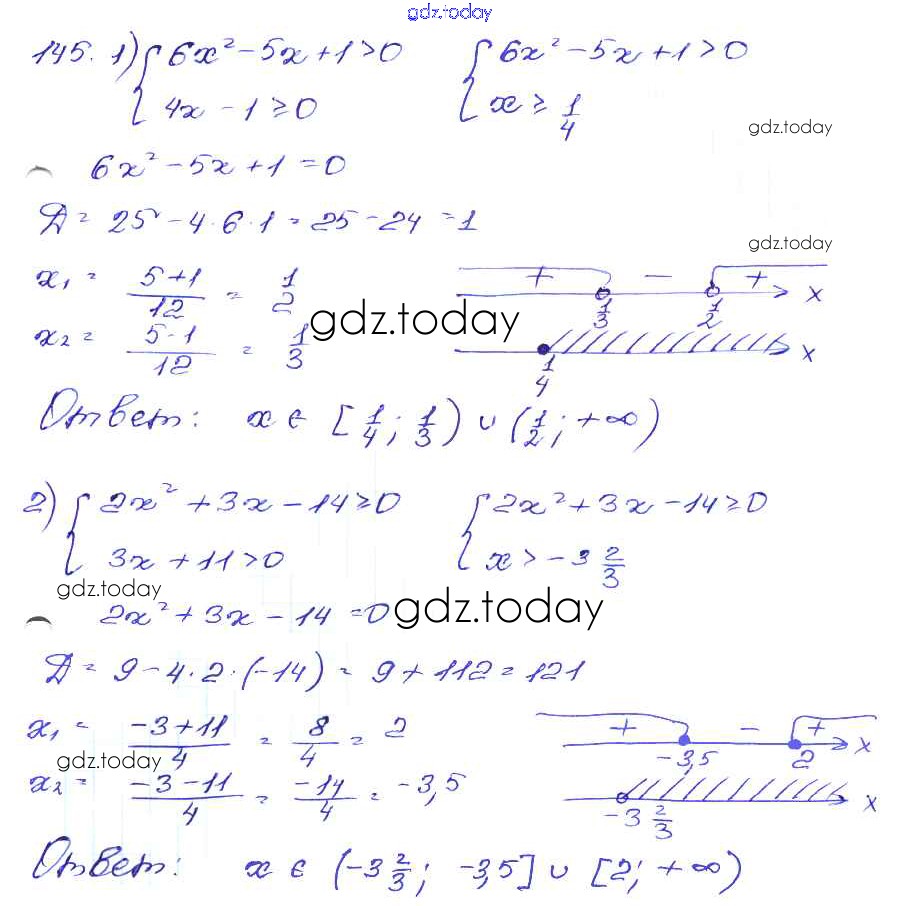 gdz.today
145. 1) { 6x² - 5x + 1 > 0 { 6x² - 5x + 1 > 0
4x - 1 ≥ 0 x ≥ 1/4
gdz.today
6x² - 5x + 1 = 0
D = 25 - 4·6·1 = 25 - 24 = 1
gdz.today
x₁ = (5+1)/12 = 1/2
+ - +
1/3 1/2 x
x₂ = (5-1)/12 = 1/3
gdz.today
1/4 x
Ответ: x ∈ [1/4; 1/3) ∪ (1/2; +∞)
2) { 2x² + 3x - 14 ≥ 0 { 2x² + 3x - 14 ≥ 0
3x + 11 > 0 x > -3 2/3
gdz.today
2x² + 3x - 14 = 0
gdz.today
D = 9 - 4·2·(-14) = 9 + 112 = 121
x₁ = (-3+11)/4 = 8/4 = 2
+ - +
-3,5 2 x
gdz.today
x₂ = (-3-11)/4 = -14/4 = -3,5
-3 2/3 x
Ответ: x ∈ (-3 2/3; -3,5] ∪ [2; +∞)